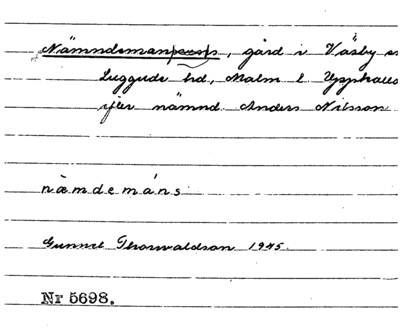 Nämndemans, gård i Väsby s
Luggude hd, Malm l Uppkallad
efter nämnd. Anders Nilsson
næmdemáns
Gunnel Thorwaldson 1945.
Nr 5698.